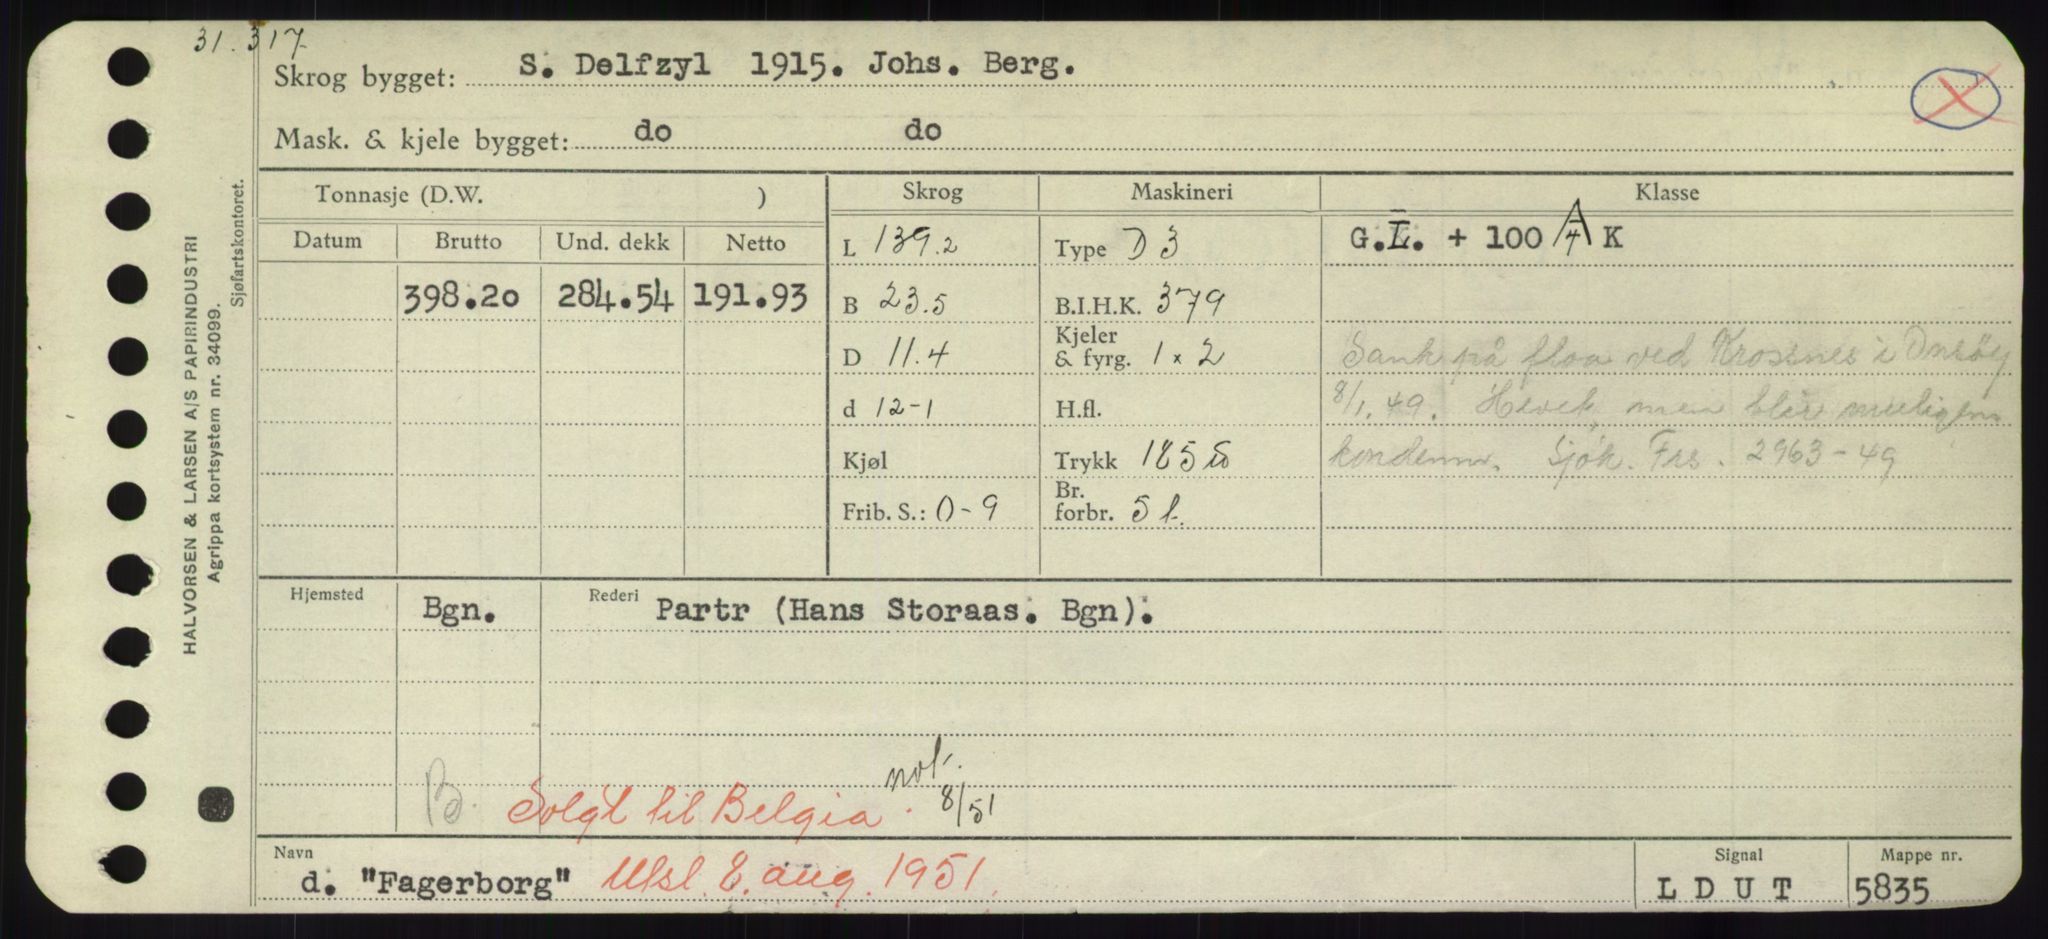 31.317
Skrog bygget: S. Delfzyl 1915. Johs. Berg.
Mask. & kjele bygget: do do
HALVORSEN & LARSEN A/S PAPIRINDUSTRI
Agrippa kortsystem nr. 34099.
Sjøfartskontoret.
Tonnasje (D.W. ) Skrog Maskineri Klasse
Datum Brutto Und. dekk Netto L 139.2 Type D 3 G.L. + 100 A/4 K
398.20 284.54 191.93 B 23.5 B.I.H.K. 379
D 11.4 Kjeler & fyrg. 1 x 2 Sank på flaa ved Krossnes i Onsøy
d 12-1 H.fl. 8/1.49. Hevet, men blir muligens
Kjøl Trykk 185 kondemn. Sjøk. Frs. 2963-49
Frib. S.: 0-9 Br. forbr. 5 t.
Hjemsted Bgn. Rederi Partr (Hans Storaas. Bgn).
B. Solgt til Belgia. not. 8/51
Navn Signal Mappe nr.
d. "Fagerborg" Utsl. 8. aug. 1951. L D U T 5835